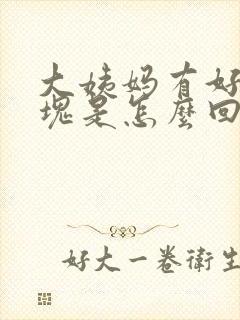 大姨妈有好
塊是怎麼回
好大一卷衛生